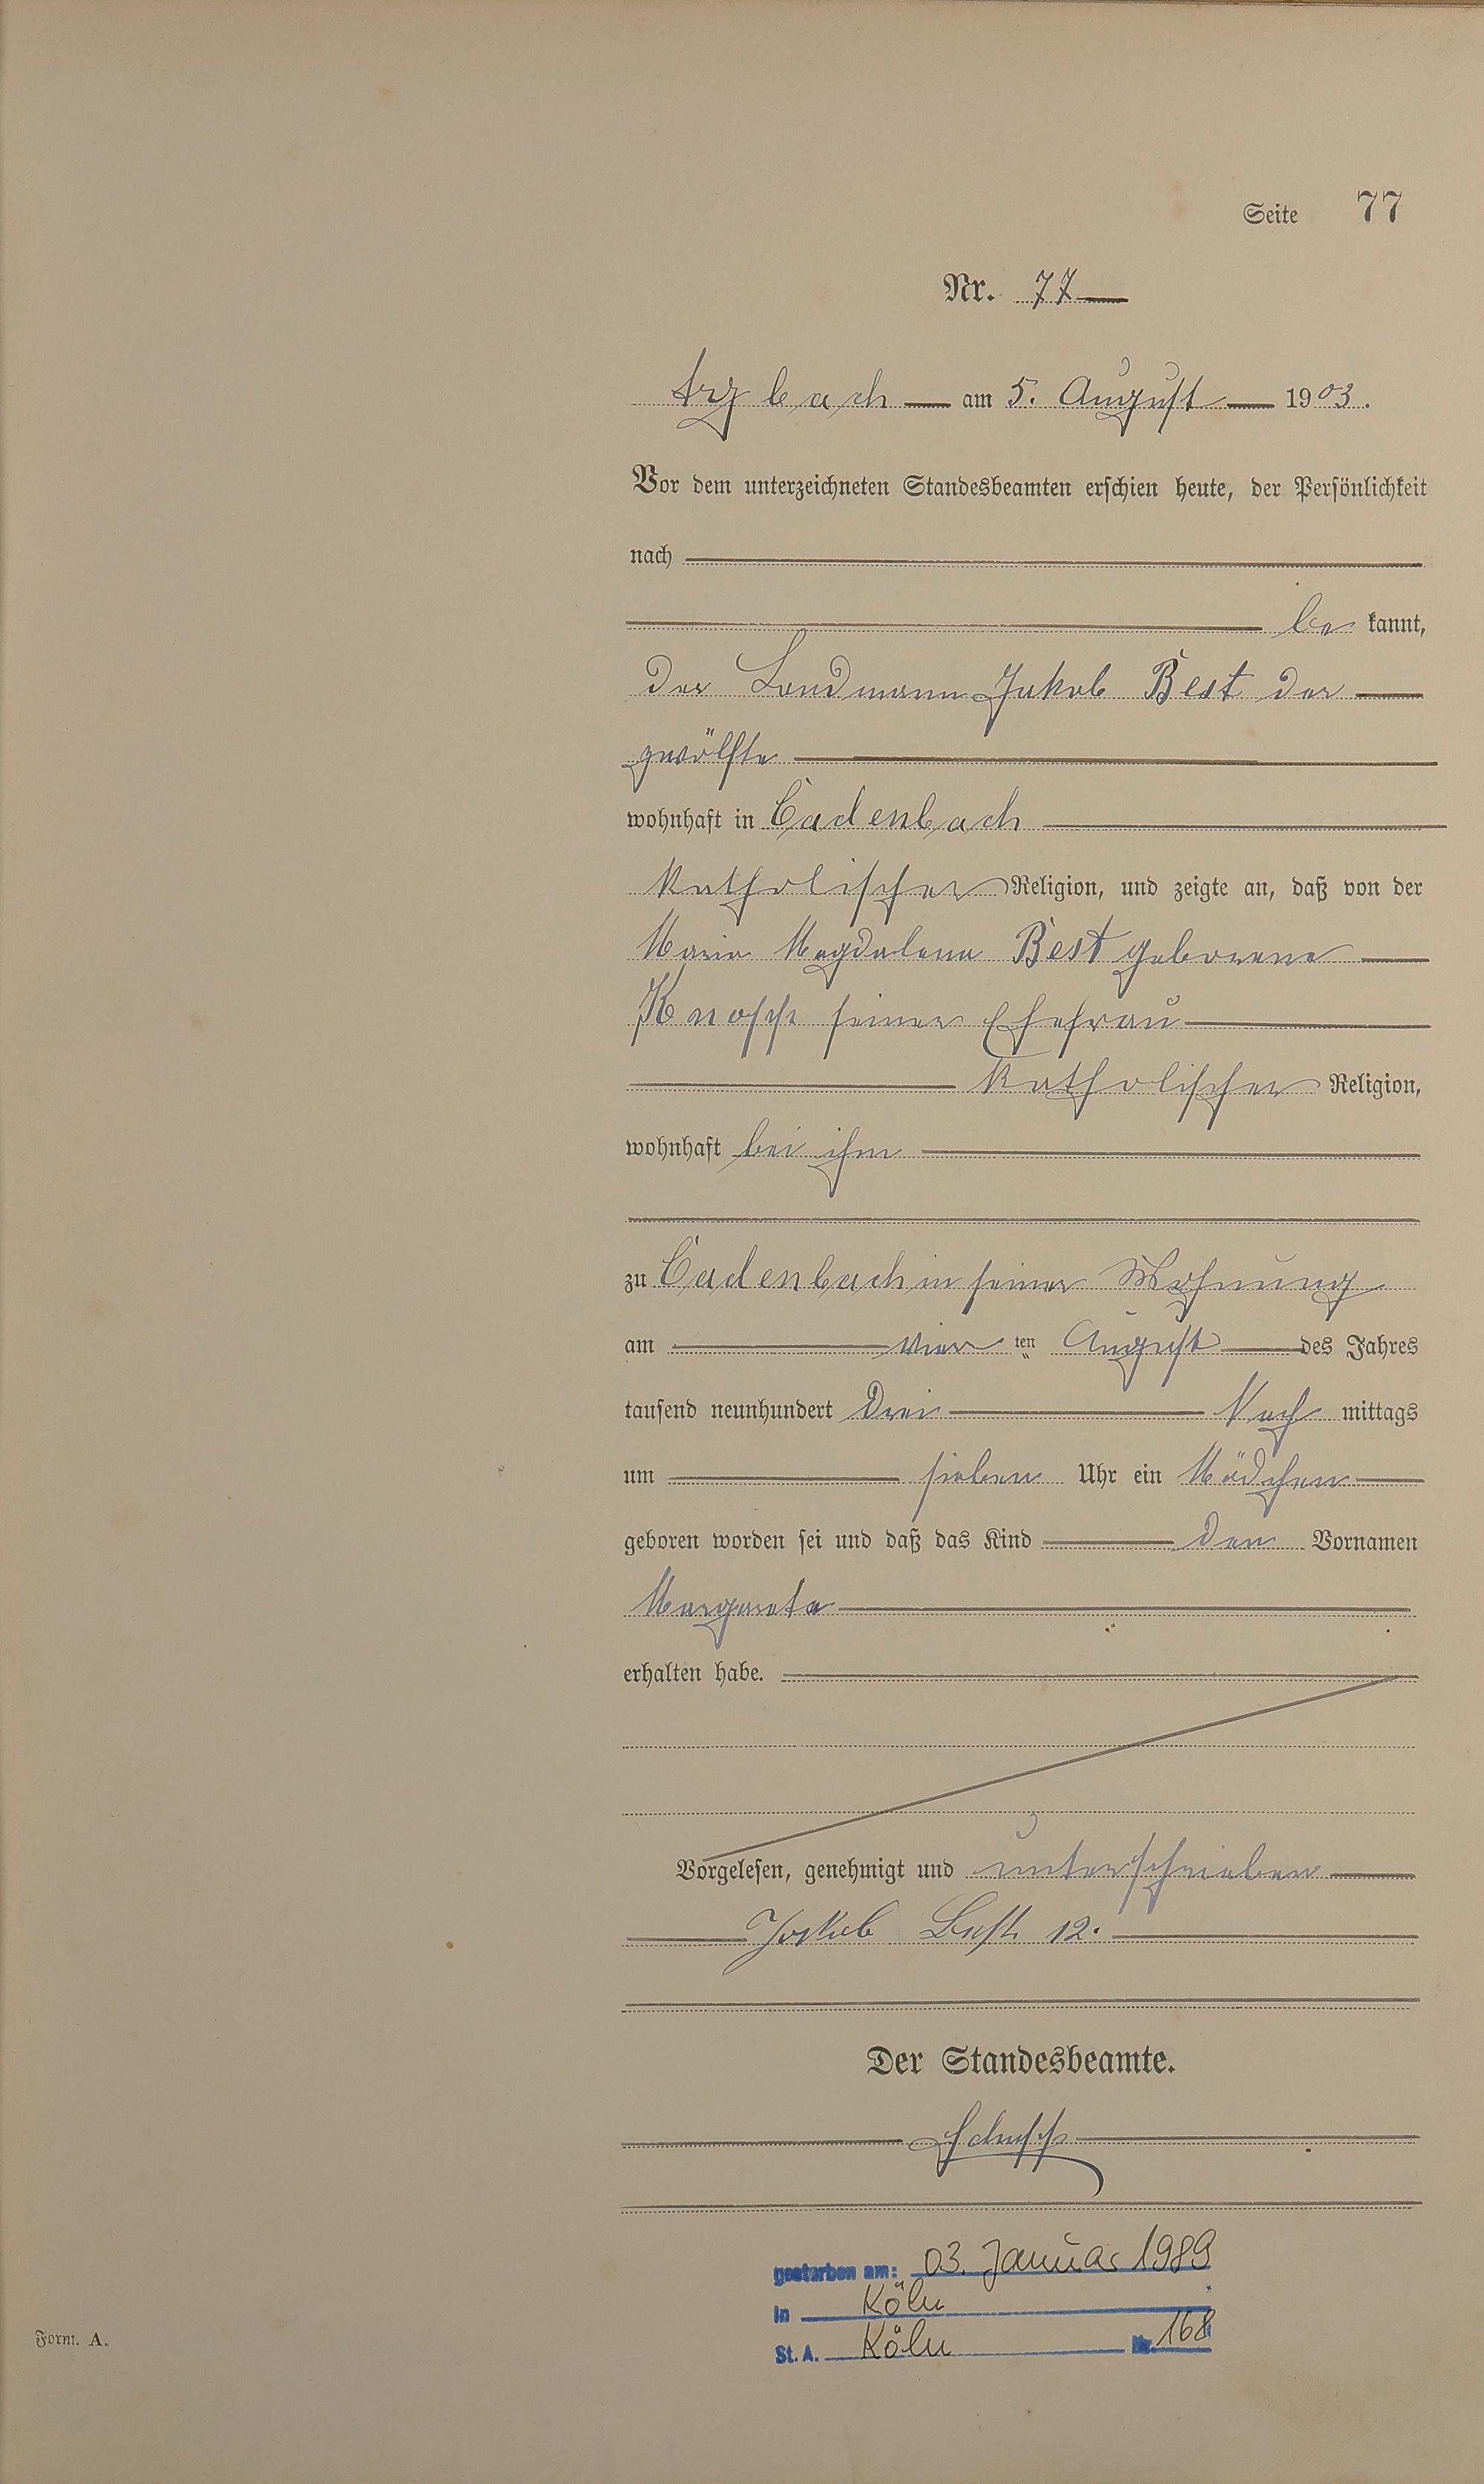 Seite 77
Nr. 77
Arzbach am 5. August 1903.
Vor dem unterzeichneten Standesbeamten erschien heute, der Persönlichkeit
nach
be kannt,
der Landmann Jakob Best der
zwölfte
wohnhaft in Cadenbach
katholischer Religion, und zeigte an, daß von der
Maria Magdalena Best geborene
Knopp seiner Ehefrau
katholischer Religion,
wohnhaft bei ihm
zu Cadenbach in seiner Wohnung
am vier ten August des Jahres
tausend neunhundert drei Nach mittags
um sieben Uhr ein Mädchen
geboren worden sei und daß das Kind den Vornamen
Margareta
erhalten habe.
Vorgelesen, genehmigt und unterschrieben
Jakob Best 12.
Der Standesbeamte.
Schupp
gestorben am: 03. Januar 1989
in Köln
St. A. Köln Nr. 168
Form. A.